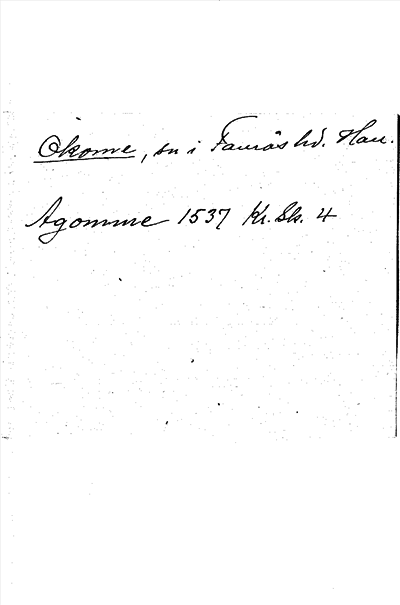 Okome, sn i Faurås hd. Hall.
Agomme 1537 Kr. Sk. 4